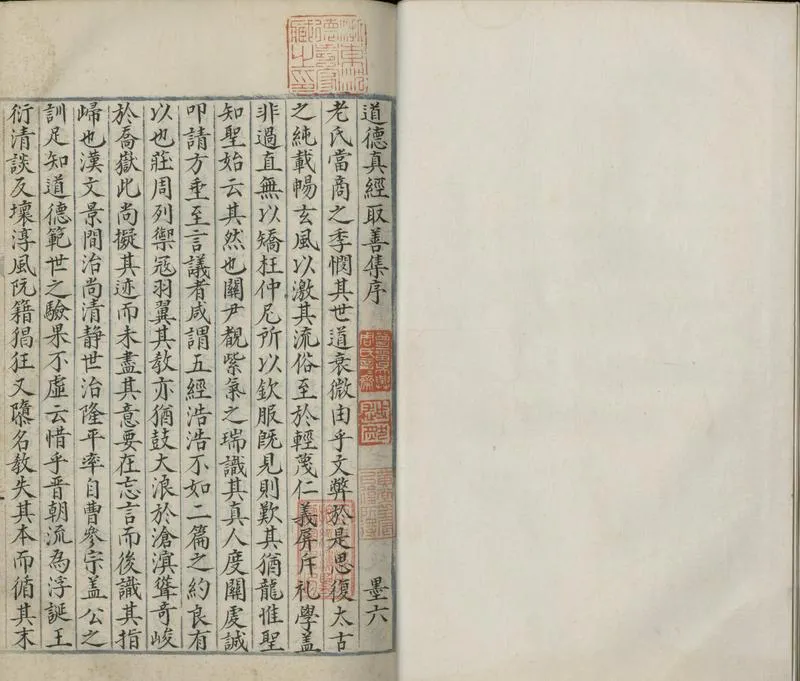 道德真經取善集序 墨六
老氏當商之季憫其世道衰微由乎文弊於是思復太古
之純載暢玄風以激其流俗至於輕蔑仁義屏斥礼學盖
非過直無以矯枉仲尼所以欽服旣見則歎其猶龍惟聖
知聖始云其然也關尹覩紫氣之瑞識其真人度關虔誠
叩請方垂至言議者咸謂五經浩浩不如二篇之約良有
以也莊周列禦冦羽翼其教亦猶鼓大浪於滄溟聳奇峻
於喬嶽此尚擬其迹而未盡其意要在忘言而後識其指
歸也漢文景間治尚清静世治隆平率自曹參宗盖公之
訓足知道德範世之驗果不虛云惜乎晋朝流為浮誕王
衍清談反壞淳風阮籍猖狂又隳名教失其本而循其末